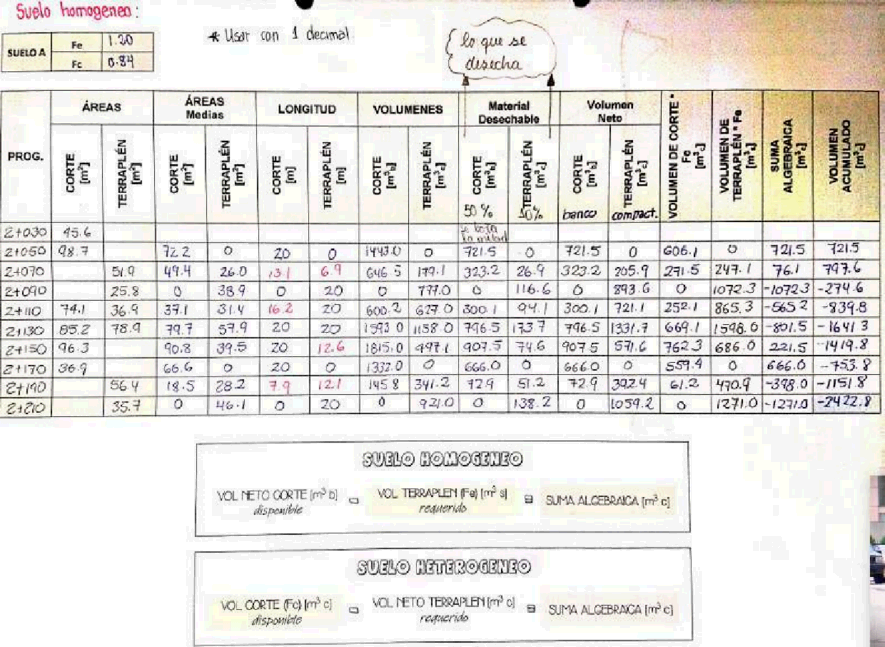 Suelo homogeneo:
SUELO A Fe 1.20
Fc 0.84
* Usar con 1 decimal
lo que se
desecha
PROG. ÁREAS ÁREAS Medias LONGITUD VOLUMENES Material Desechable Volumen Neto VOLUMEN DE CORTE * Fc [m³c] VOLUMEN DE TERRAPLÉN * Fe [m³s] SUMA ALGEBRAICA [m³c] VOLUMEN ACUMULADO [m³c]
CORTE [m²] TERRAPLÉN [m²] CORTE [m²] TERRAPLÉN [m²] CORTE [m] TERRAPLÉN [m] CORTE [m³b] TERRAPLÉN [m³c] CORTE [m³b] TERRAPLÉN [m³c] CORTE [m³b] TERRAPLÉN [m³c]
50 % banco compact.
2+030 45.6
2+050 98.7 72.2 0 20 0 1443.0 0 721.5 0 721.5 0 606.1 0 721.5 721.5
2+070 51.9 49.4 26.0 13.1 6.9 646.5 179.1 323.2 26.9 323.2 205.9 271.5 247.1 76.1 797.6
2+090 25.8 0 38.9 0 20 0 777.0 0 116.6 0 893.6 0 1072.3 -1072.3 -274.6
2+110 74.1 36.9 37.1 31.4 16.2 20 600.2 627.0 300.1 94.1 300.1 721.1 252.1 865.3 -565.2 -839.8
2+130 85.2 78.9 79.7 57.9 20 20 1593.0 1158.0 796.5 173.7 796.5 1331.7 669.1 1598.0 -801.5 -1641.3
2+150 96.3 90.8 39.5 20 12.6 1815.0 497.1 907.5 74.6 907.5 571.6 762.3 686.0 221.5 -1419.8
2+170 36.9 66.6 0 20 0 1332.0 0 666.0 0 666.0 0 559.4 0 666.0 -753.8
2+190 56.4 18.5 28.2 7.9 12.1 145.8 341.2 72.9 51.2 72.9 392.4 61.2 470.9 -398.0 -1151.8
2+210 35.7 0 46.1 0 20 0 921.0 0 138.2 0 1059.2 0 1271.0 -1271.0 -2422.8
SUELO HOMOGENEO
VOL NETO CORTE [m³ b] - VOL TERRAPLEN (Fe) [m³ s] = SUMA ALGEBRAICA [m³ c]
disponible requerido
SUELO HETEROGENEO
VOL CORTE (Fc) [m³ c] - VOL NETO TERRAPLEN [m³ c] = SUMA ALGEBRAICA [m³ c]
disponible requerido